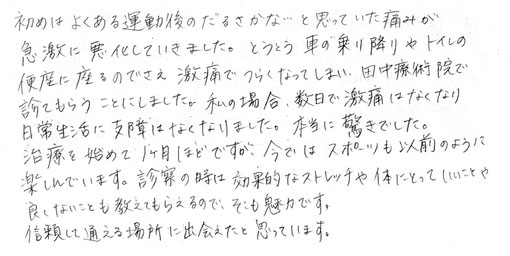 初めはよくある運動後のだるさかな…と思っていた痛みが
急激に悪化していきました。とうとう車の乗り降りやトイレの
便座に座るのでさえ激痛でつらくなってしまい、田中療術院で
診てもらうことにしました。私の場合、数日で激痛はなくなり
日常生活に支障はなくなりました。本当に驚きでした。
治療を始めて1ヶ月ほどですが、今ではスポーツも以前のように
楽しんでいます。診察の時は効果的なストレッチや体にとっていいことや
良くないことも教えてもらえるので、そこも魅力です。
信頼して通える場所に出会えたと思っています。